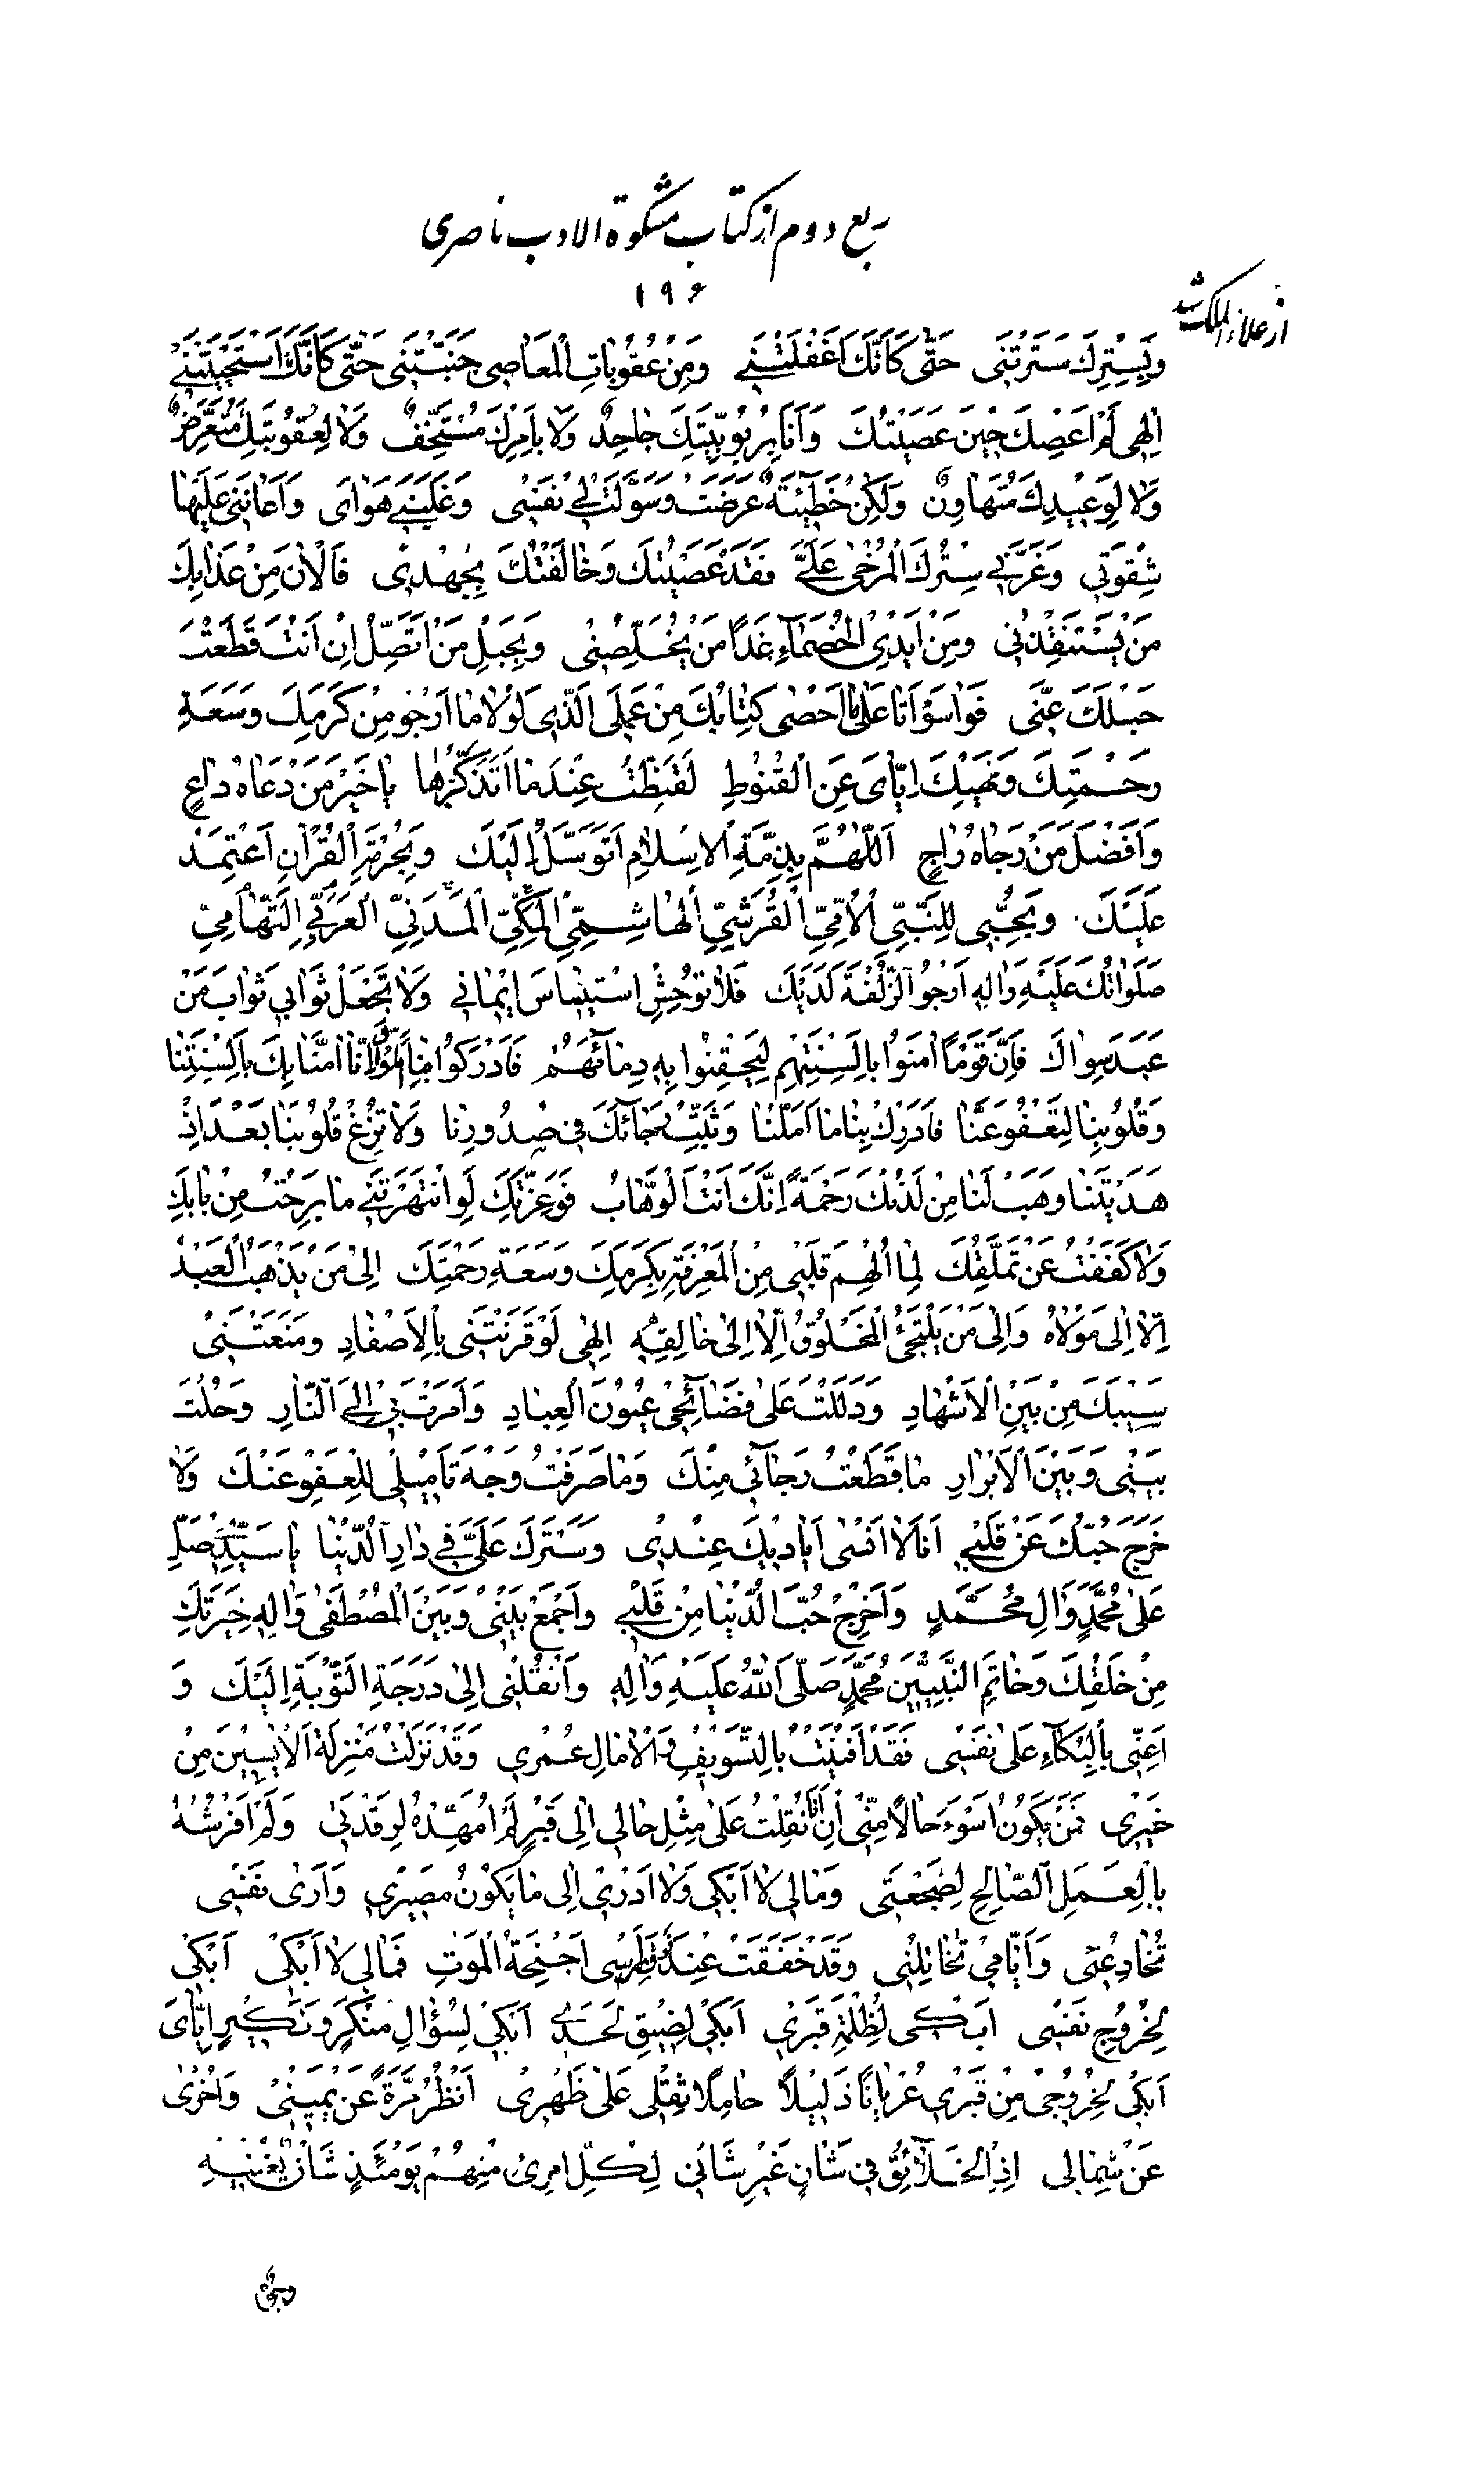 ربع دوم از کتاب مشکوة الادب ناصری
۱۹۶
از علاء الملک شد
وَبِسِتْرِكَ سَتَرْتَنی حَتّٰی كَاَنَّكَ اَغْفَلْتَنی وَمِنْ عُقُوبٰاتِ الْمَعٰاصی جَنَّبْتَنی حَتّٰی كَاَنَّكَ اسْتَحْیَیْتَنی
اِلٰهی لَمْ اَعْصِكَ حینَ عَصَیْتُكَ وَاَنَا بِرُبُوبِیَّتِكَ جٰاحِدٌ وَلٰا بِاَمْرِكَ مُسْتَخِفٌّ وَلٰا لِعُقُوبَتِكَ مُتَعَرِّضٌ
وَلٰا لِوَعیدِكَ مُتَهٰاوِنٌ وَلٰكِنْ خَطیٓئَةٌ عَرَضَتْ وَسَوَّلَتْ لی نَفْسی وَغَلَبَنی هَوٰایَ وَاَعٰانَنی عَلَیْهٰا
شِقْوَتی وَغَرَّنی سِتْرُكَ الْمُرْخٰی عَلَیَّ فَقَدْ عَصَیْتُكَ وَخٰالَفْتُكَ بِجُهْدی فَالْاٰنَ مِنْ عَذٰابِكَ
مَنْ یَسْتَنْقِذُنی وَمِنْ اَیْدِی الْخُصَمٰآءِ غَدًا مَنْ یُخَلِّصُنی وَبِحَبْلِ مَنْ اَتَّصِلُ اِنْ اَنْتَ قَطَعْتَ
حَبْلَكَ عَنّی فَوٰاسَوْاَتٰا عَلٰی مٰا اَحْصٰی كِتٰابُكَ مِنْ عَمَلِی الَّذی لَوْلٰا مٰا اَرْجُو مِنْ كَرَمِكَ وَسَعَةِ
رَحْمَتِكَ وَنَهْیِكَ اِیّٰایَ عَنِ الْقُنُوطِ لَقَنَطْتُ عِنْدَ مٰا اَتَذَكَّرُهٰا یٰا خَیْرَ مَنْ دَعٰاهُ دٰاعٍ
وَاَفْضَلَ مَنْ رَجٰاهُ رٰاجٍ اَللّٰهُمَّ بِذِمَّةِ الْاِسْلٰامِ اَتَوَسَّلُ اِلَیْكَ وَبِحُرْمَةِ الْقُرْاٰنِ اَعْتَمِدُ
عَلَیْكَ وَبِحُبّی لِلنَّبِیِّ الْاُمِّیِّ الْقُرَشِیِّ الْهٰاشِمِیِّ الْمَكِّیِّ الْمَدَنِیِّ الْعَرَبِیِّ التِّهٰامِیِّ
صَلَوٰاتُكَ عَلَیْهِ وَاٰلِهِ اَرْجُو الزُّلْفَةَ لَدَیْكَ فَلٰا تُوحِشِ اسْتینٰاسَ ایمٰانی وَلٰا تَجْعَلْ ثَوٰابی ثَوٰابَ مَنْ
عَبَدَ سِوٰاكَ فَاِنَّ قَوْمًا اٰمَنُوا بِاَلْسِنَتِهِمْ لِیَحْقِنُوا بِهِ دِمٰآئَهُمْ فَاَدْرَكُوا مٰا اَمَّلُوا وَاِنّٰا اٰمَنّٰا بِكَ بِاَلْسِنَتِنٰا
وَقُلُوبِنٰا لِتَعْفُوَ عَنّٰا فَاَدْرِكْ بِنٰا مٰا اَمَّلْنٰا وَثَبِّتْ رَجٰآئَكَ فی صُدُورِنٰا وَلٰا تُزِغْ قُلُوبَنٰا بَعْدَ اِذْ
هَدَیْتَنٰا وَهَبْ لَنٰا مِنْ لَدُنْكَ رَحْمَةً اِنَّكَ اَنْتَ الْوَهّٰابُ فَوَعِزَّتِكَ لَوِ انْتَهَرْتَنی مٰا بَرِحْتُ مِنْ بٰابِكَ
وَلٰا كَفَفْتُ عَنْ تَمَلُّقِكَ لِمٰا اُلْهِمَ قَلْبی مِنَ الْمَعْرِفَةِ بِكَرَمِكَ وَسَعَةِ رَحْمَتِكَ اِلٰی مَنْ یَذْهَبُ الْعَبْدُ
اِلّٰا اِلٰی مَوْلٰاهُ وَاِلٰی مَنْ یَلْتَجِئُ الْمَخْلُوقُ اِلّٰا اِلٰی خٰالِقِهِ اِلٰهی لَوْ قَرَنْتَنی بِالْاَصْفٰادِ وَمَنَعْتَنی
سَیْبَكَ مِنْ بَیْنِ الْاَشْهٰادِ وَدَلَلْتَ عَلٰی فَضٰآئِحی عُیُونَ الْعِبٰادِ وَاَمَرْتَ بی اِلَی النّٰارِ وَحُلْتَ
بَیْنی وَبَیْنَ الْاَبْرٰارِ مٰا قَطَعْتُ رَجٰآئی مِنْكَ وَمٰا صَرَفْتُ وَجْهَ تَاْمیلی لِلْعَفْوِ عَنْكَ وَلٰا
خَرَجَ حُبُّكَ عَنْ قَلْبی اَنَا لٰا اَنْسٰی اَیٰادیكَ عِنْدی وَسَتْرَكَ عَلَیَّ فی دٰارِ الدُّنْیٰا یٰا سَیِّدی صَلِّ
عَلٰی مُحَمَّدٍ وَاٰلِ مُحَمَّدٍ وَاَخْرِجْ حُبَّ الدُّنْیٰا مِنْ قَلْبی وَاجْمَعْ بَیْنی وَبَیْنَ الْمُصْطَفٰی وَاٰلِهِ خِیَرَتِكَ
مِنْ خَلْقِكَ وَخٰاتَمِ النَّبِیّینَ مُحَمَّدٍ صَلَّی اللّٰهُ عَلَیْهِ وَاٰلِهِ وَانْقُلْنی اِلٰی دَرَجَةِ التَّوْبَةِ اِلَیْكَ وَ
اَعِنّی بِالْبُكٰآءِ عَلٰی نَفْسی فَقَدْ اَفْنَیْتُ بِالتَّسْویفِ وَالْاٰمٰالِ عُمْری وَقَدْ نَزَلْتُ مَنْزِلَةَ الْاٰیِسینَ مِنْ
خَیْری فَمَنْ یَكُونُ اَسْوَءَ حٰالًا مِنّی اِنْ اَنَا نُقِلْتُ عَلٰی مِثْلِ حٰالی اِلٰی قَبْرٍ لَمْ اُمَهِّدْهُ لِرَقْدَتی وَلَمْ اَفْرُشْهُ
بِالْعَمَلِ الصّٰالِحِ لِضَجْعَتی وَمٰالی لٰا اَبْكی وَلٰا اَدْری اِلٰی مٰا یَكُونُ مَصیری وَاَرٰی نَفْسی
تُخٰادِعُنی وَاَیّٰامی تُخٰاتِلُنی وَقَدْ خَفَقَتْ عِنْدَ رَاْسی اَجْنِحَةُ الْمَوْتِ فَمٰالی لٰا اَبْكی اَبْكی
لِخُرُوجِ نَفْسی اَبْكی لِظُلْمَةِ قَبْری اَبْكی لِضیقِ لَحَدی اَبْكی لِسُؤٰالِ مُنْكَرٍ وَنَكیرٍ اِیّٰایَ
اَبْكی لِخُرُوجی مِنْ قَبْری عُرْیٰانًا ذَلیلًا حٰامِلًا ثِقْلی عَلٰی ظَهْری اَنْظُرُ مَرَّةً عَنْ یَمینی وَاُخْرٰی
عَنْ شِمٰالی اِذِ الْخَلٰآئِقُ فی شَاْنٍ غَیْرِ شَاْنی لِكُلِّ امْرِئٍ مِنْهُمْ یَوْمَئِذٍ شَاْنٌ یُغْنیهِ
وجوه